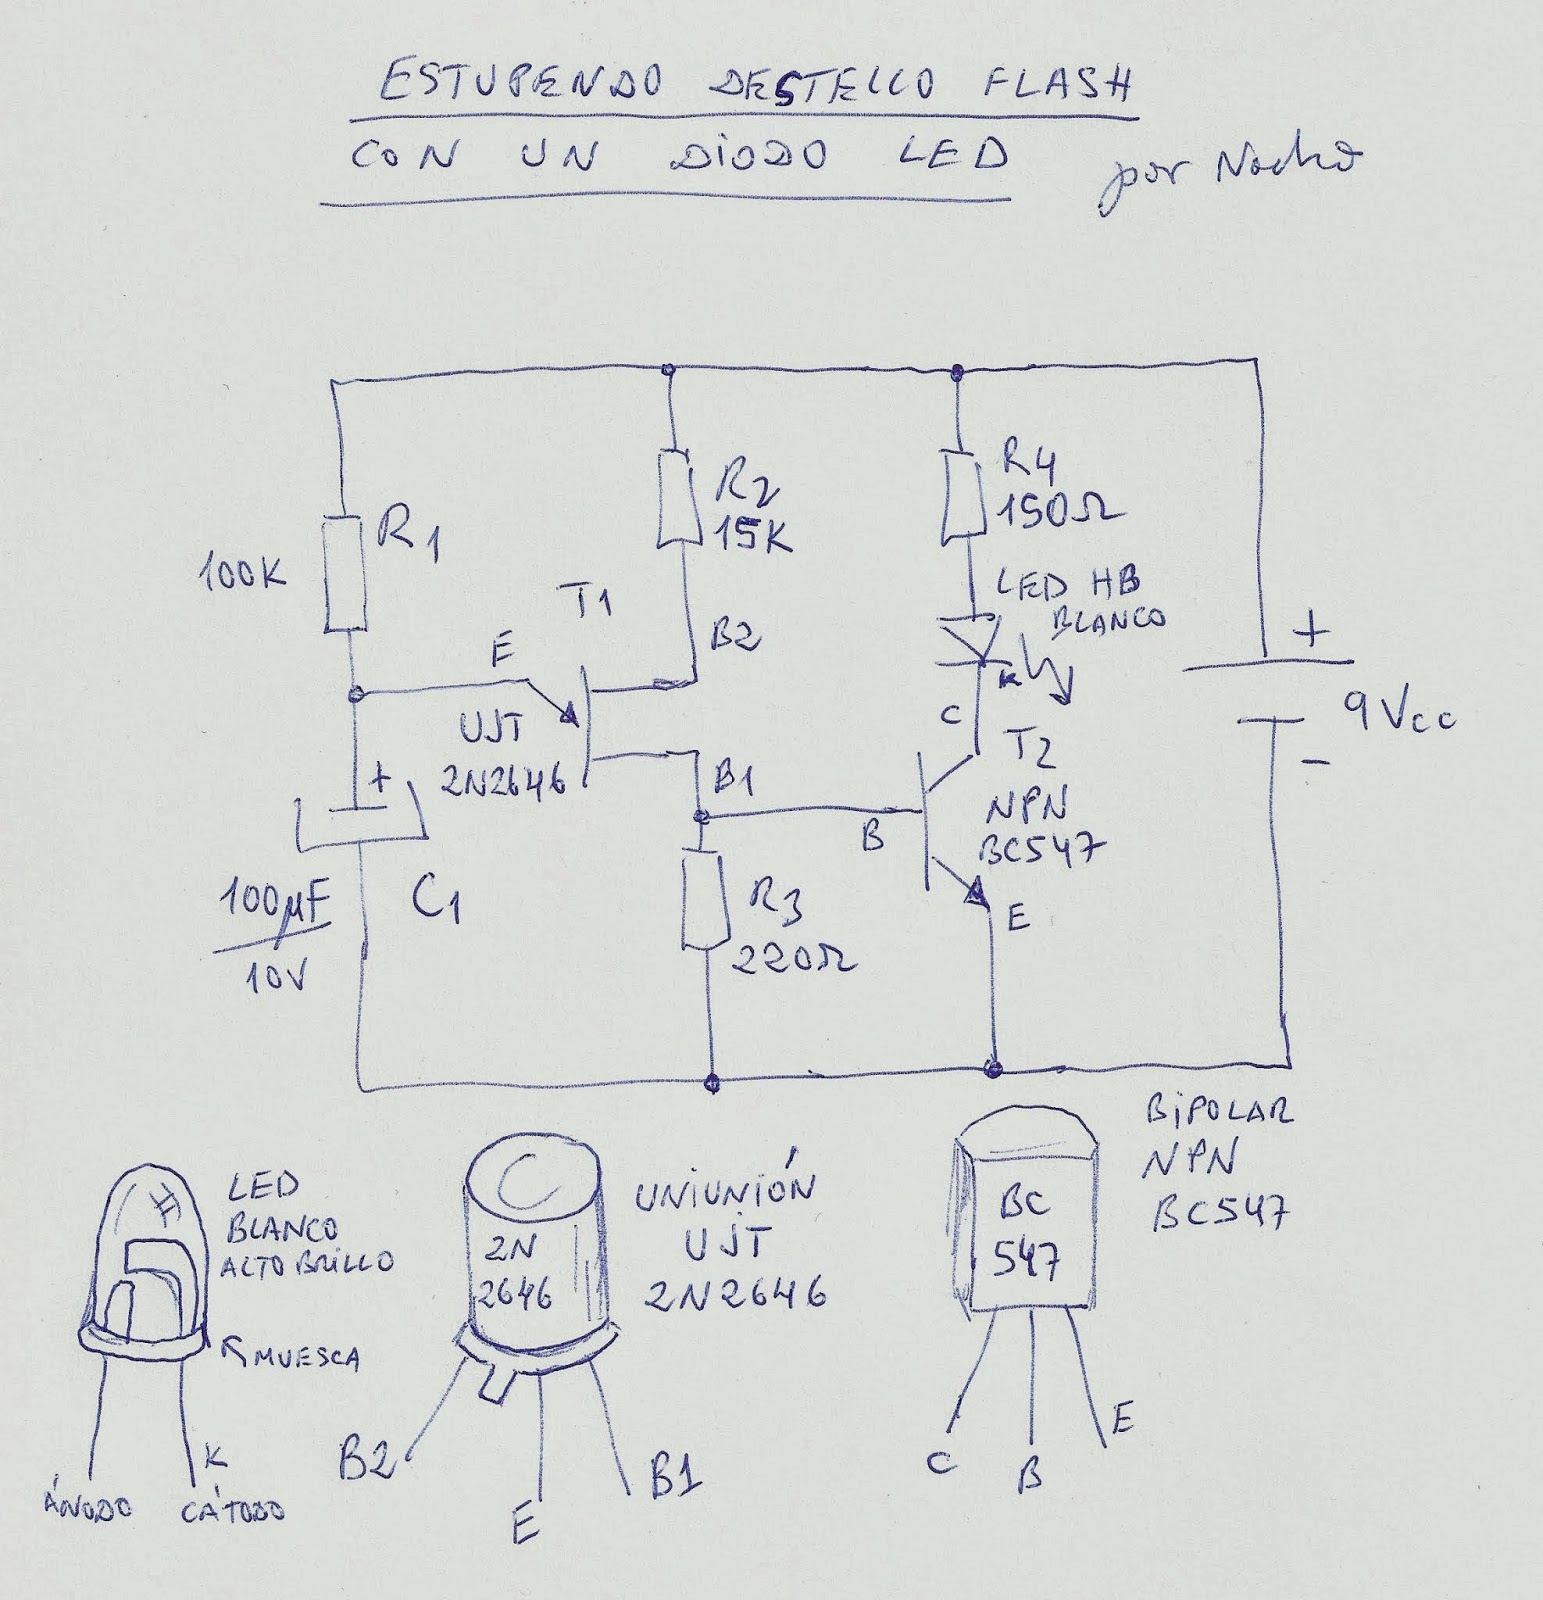 ESTUPENDO DESTELLO FLASH
CON UN DIODO LED
por Nacho
R1
100K
R2
15K
R4
150Ω
LED HB
BLANCO
K
T1
E
B2
UJT
2N2646
B1
C
T2
NPN
BC547
B
E
+
9Vcc
-
+
100µF
10V
C1
R3
220Ω
LED
BLANCO
ALTO BRILLO
MUESCA
K
ÁNODO
CÁTODO
2N
2646
UNIUNIÓN
UJT
2N2646
B2
E
B1
BC
547
BIPOLAR
NPN
BC547
C
B
E